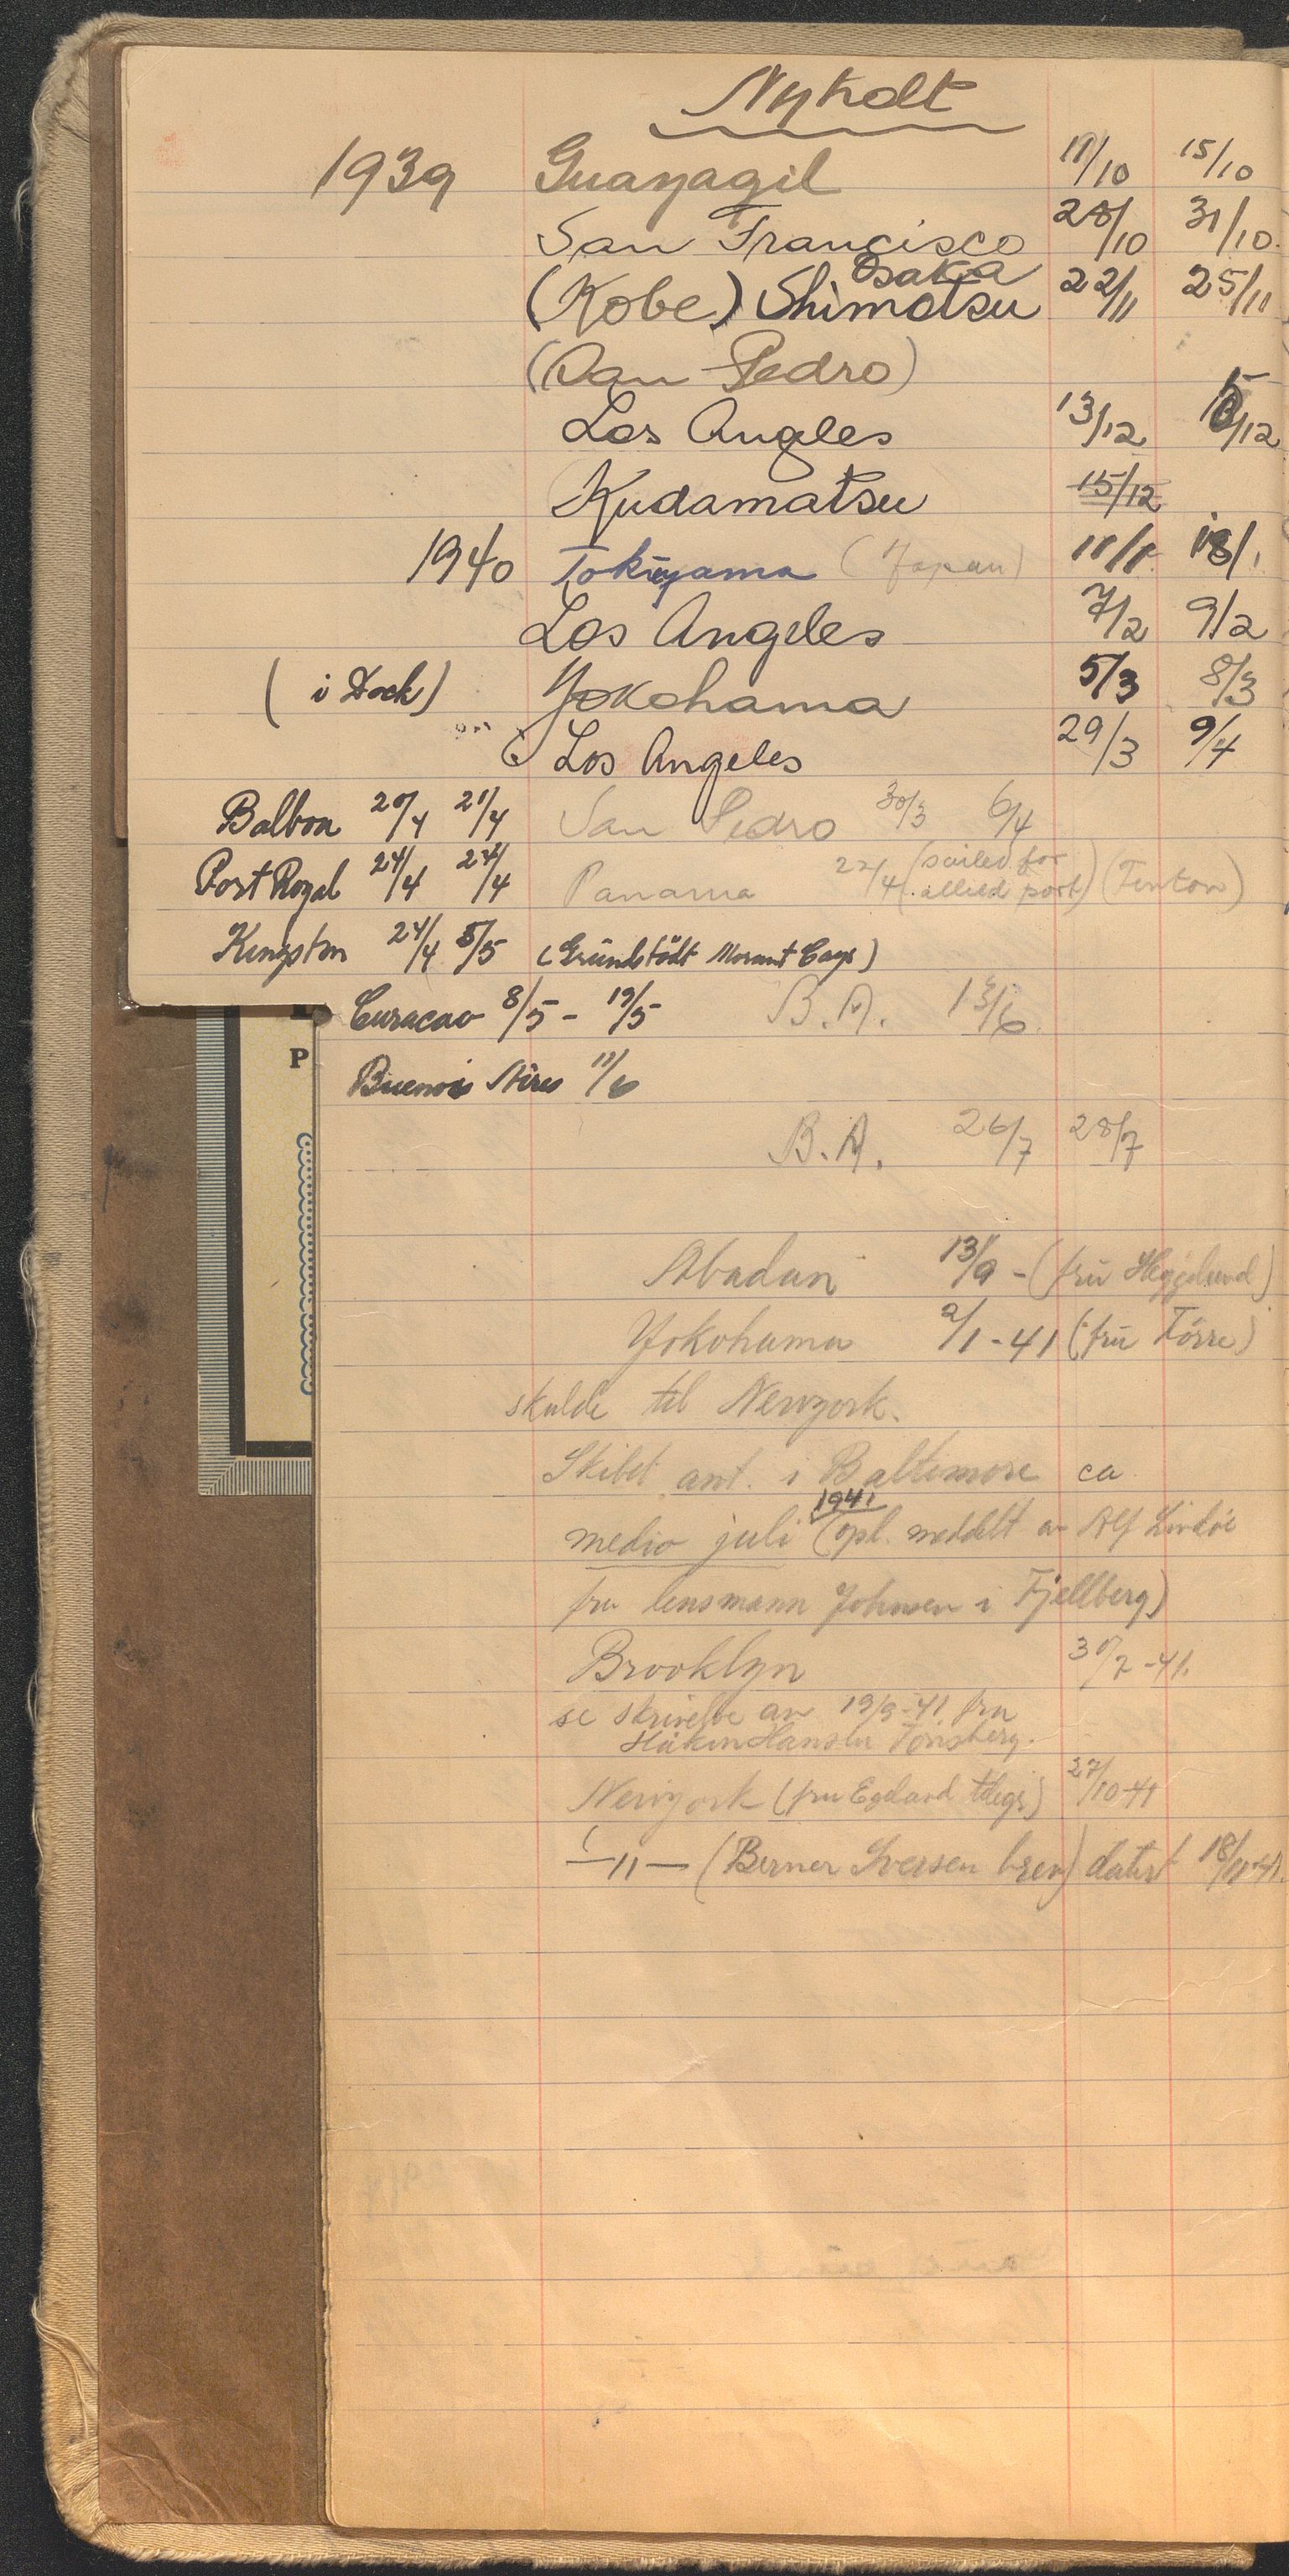 Nyholt
1939 Guayagil 11/10 15/10
San Francisco 28/10 31/10.
Osaka
(Kobe) Shimotsu 22/11 25/11
(San Pedro)
Los Angeles 13/12 /12
Kudamatsu 15/12
1940 Tokuyama (Japan) 11/1 18/1
Los Angeles 7/2 9/2
(i Dock) Yokohama 5/3 8/3
Los Angeles 29/3 9/4
Balboa 20/4 21/4 San Pedro 30/3 6/4
Port Royal 24/4 24/4 Panama 22/4 (sailed for allied port) (Finton)
Kingston 24/4 5/5 (Grundstödt Morant Cays)
Curacao 8/5 - 19/5 B.A. 13/6.
P
Buenos Aires 11/6
B.A. 26/7 28/7
Abadan 13/9 - (fru Heggelund)
Yokohama 2/1-41 (fru Tørre)
skulde til Newyork.
Skibet ant. i Baltimore ca
1941
medio juli (opl. meddelt av Alf Lindøe
fra lensmann Johnsen i Fjellberg)
Brooklyn 30/7-41.
se skrivelse av 19/9-41 fra
Håkon Hansen Tönsberg.
Newyork (fru Egeland telegr) 27/10-41
—"— (Berner Iversen brev) datert 18/11-41.